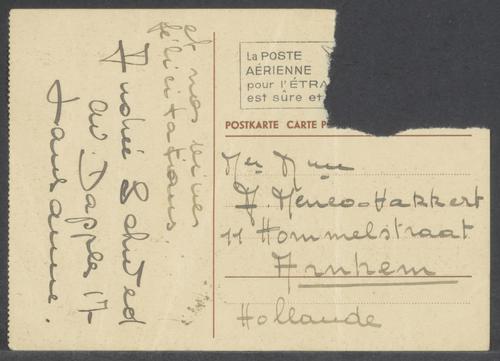 et nos vives
félicitations.
André Schwed
av. Dapples 17
Lausanne.
La POSTE
AÉRIENNE
pour l'ÉTRA
est sûre et
POSTKARTE CARTE P
Mr Mme
Menco-Hakkert
11 Hommelstraat
Arnhem
Hollande